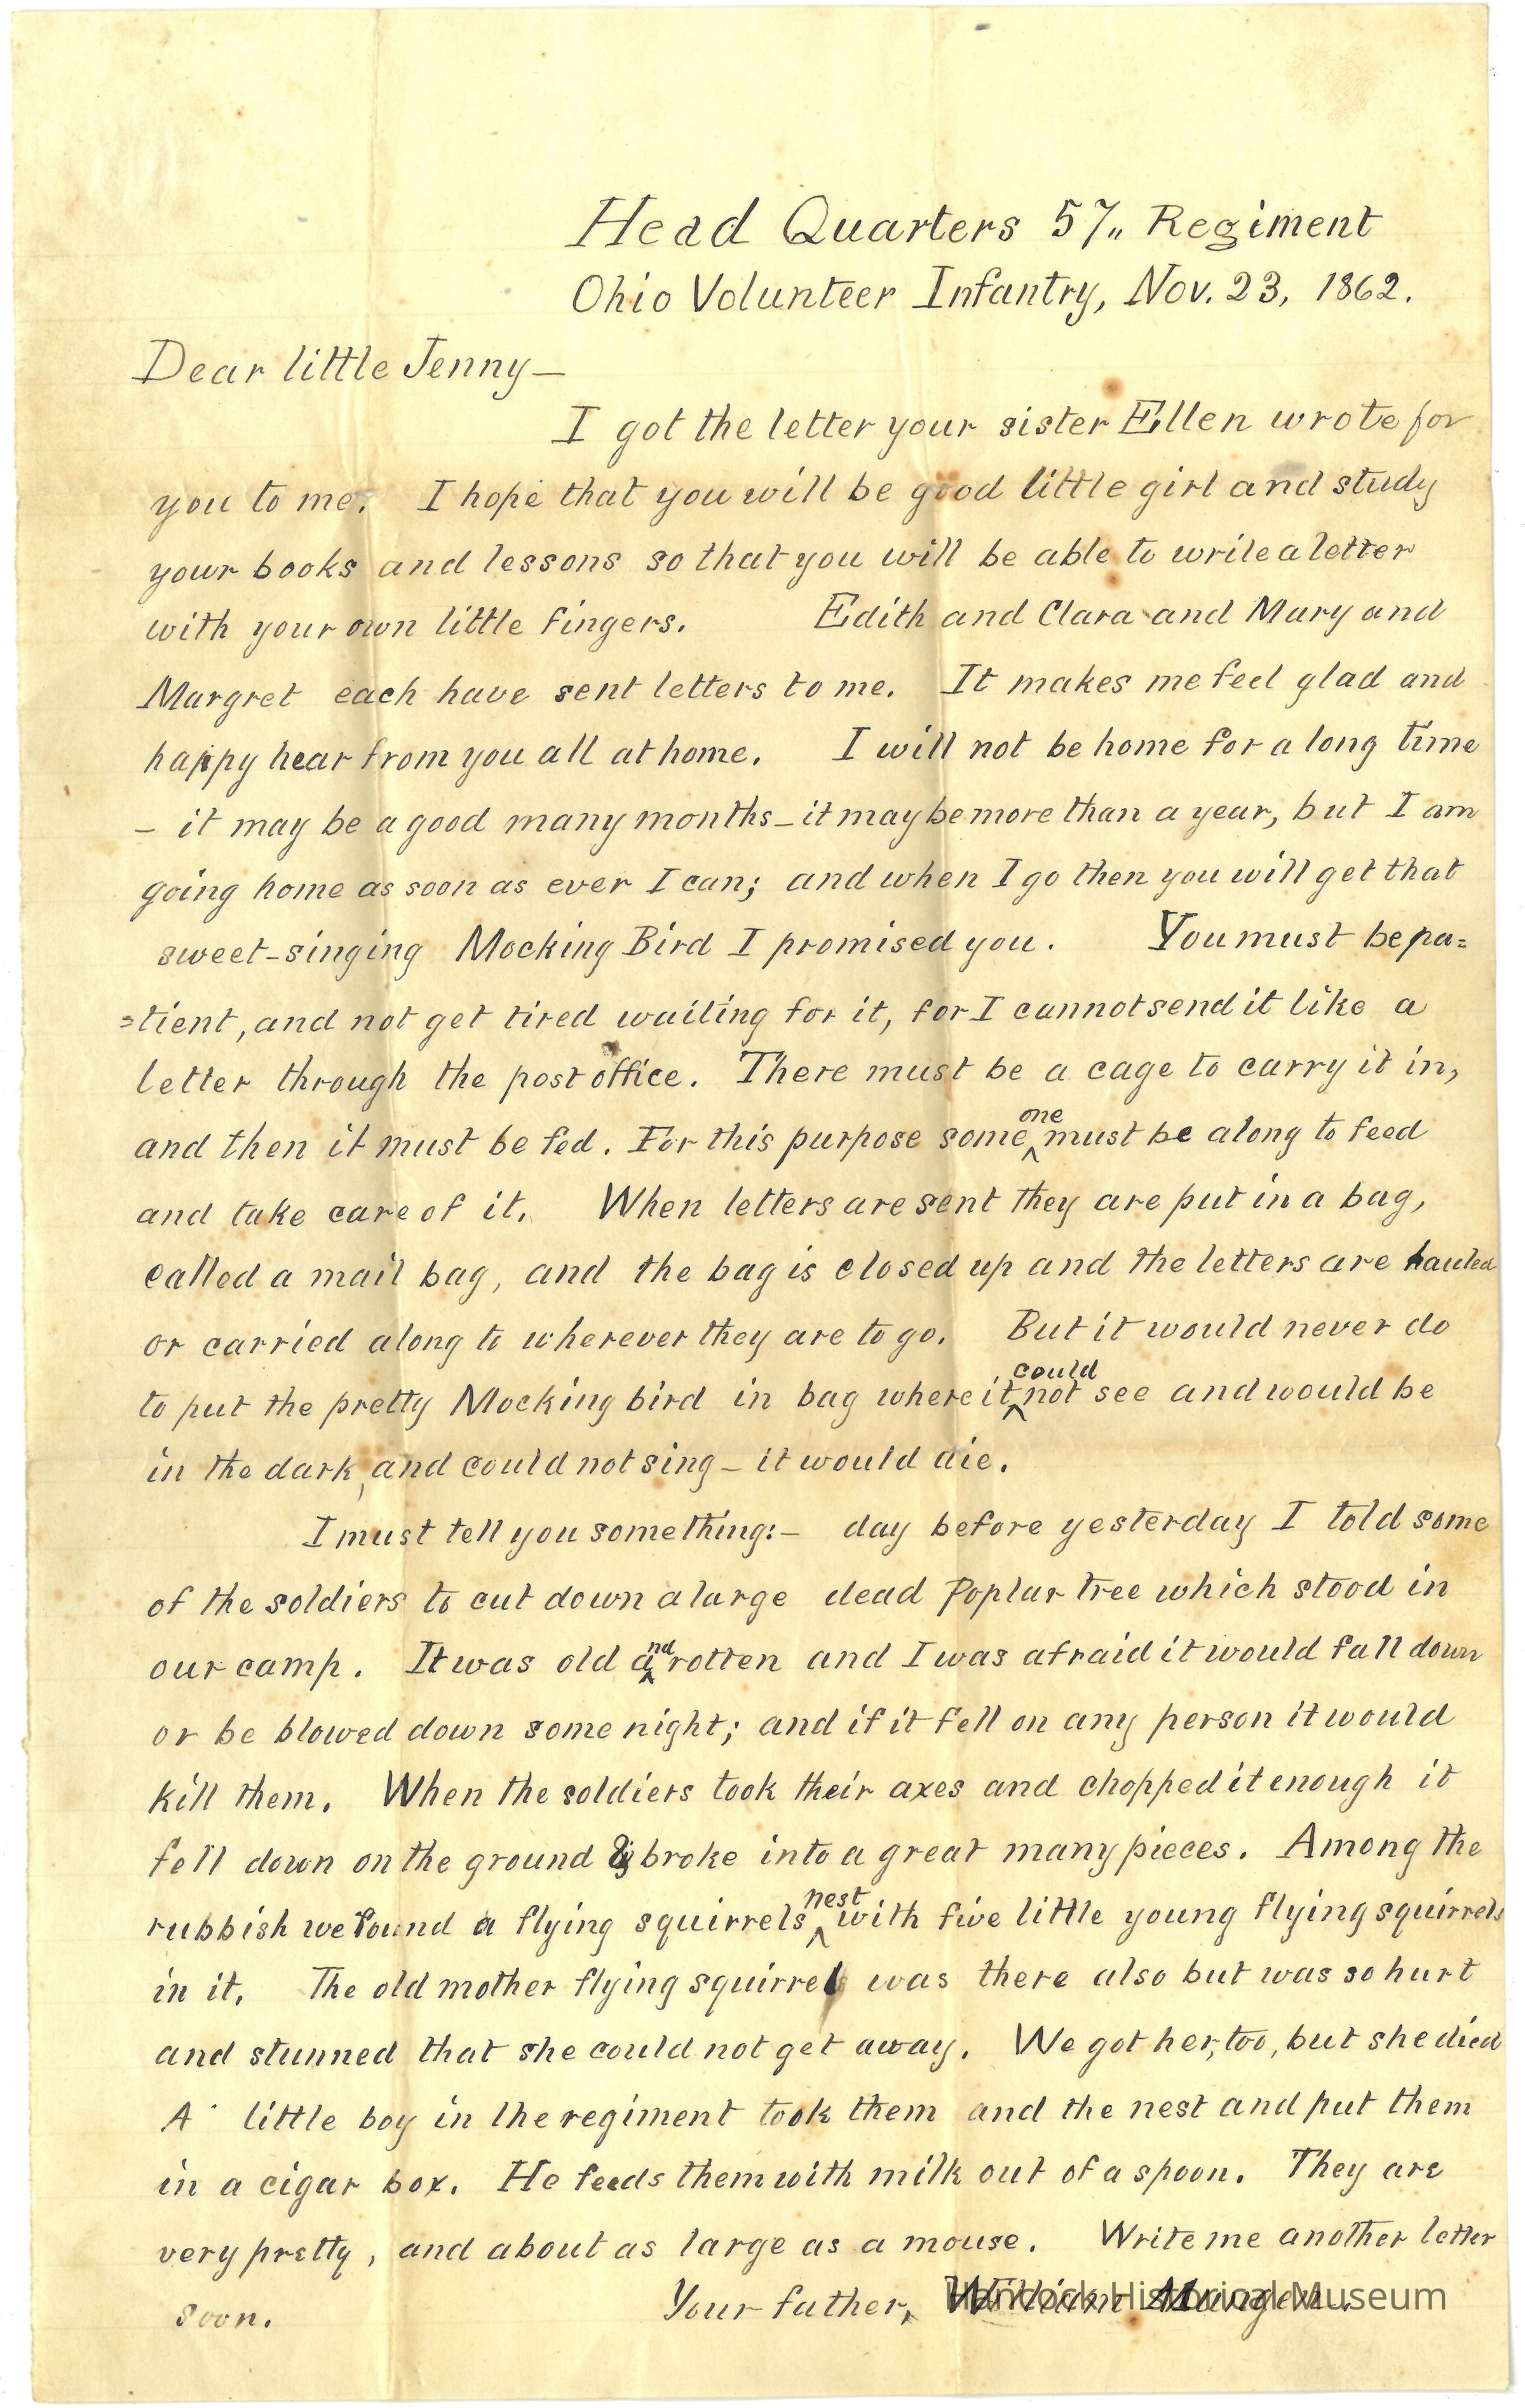 Head Quarters 57„ Regiment
Ohio Volunteer Infantry, Nov. 23, 1862.
Dear little Jenny—
I got the letter your sister Ellen wrote for
you to me. I hope that you will be good little girl and study
your books and lessons so that you will be able to write a letter
with your own little fingers. Edith and Clara and Mary and
Margret each have sent letters to me. It makes me feel glad and
happy hear from you all at home. I will not be home for a long time
– it may be a good many months – it may be more than a year, but I am
going home as soon as ever I can; and when I go then you will get that
sweet-singing Mocking Bird I promised you. You must be pa=
=tient, and not get tired waiting for it, for I cannot send it like a
letter through the post office. There must be a cage to carry it in,
and then it must be fed. For this purpose some ^one must be along to feed
and take care of it. When letters are sent they are put in a bag,
called a mail bag, and the bag is closed up and the letters are hauled
or carried along to wherever they are to go. But it would never do
to put the pretty Mocking bird in bag where it ^could not see and would be
in the dark, and could not sing – it would die.
I must tell you something:– day before yesterday I told some
of the soldiers to cut down a large dead Poplar tree which stood in
our camp. It was old a^nd rotten and I was afraid it would fall down
or be blowed down some night; and if it fell on any person it would
kill them. When the soldiers took their axes and chopped it enough it
fell down on the ground & broke into a great many pieces. Among the
rubbish we found a flying squirrels ^nest with five little young flying squirrels
in it. The old mother flying squirrel was there also but was so hurt
and stunned that she could not get away. We got her, too, but she died
A little boy in the regiment took them and the nest and put them
in a cigar box. He feeds them with milk out of a spoon. They are
very pretty, and about as large as a mouse. Write me another letter
soon. Your father, William Mungen.
Hancock Historical Museum